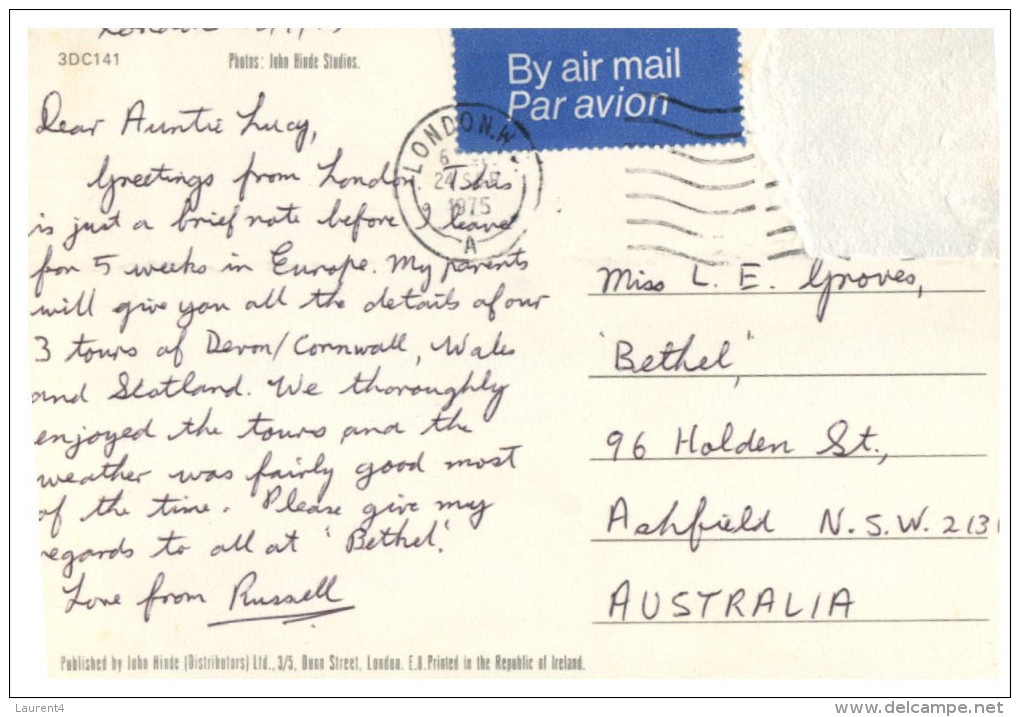 London
3DC141
Photos: John Hinde Studios.
By air mail
Par avion
LONDON. W.
24 SEP
1975
A
Dear Auntie Lucy,
Greetings from London. This
is just a brief note before I leave
for 5 weeks in Europe. My parents
will give you all the details of our
3 tours of Devon/Cornwall, Wales
and Scotland. We thoroughly
enjoyed the tours and the
weather was fairly good most
of the time. Please give my
regards to all at 'Bethel'.
Love from Russell
Miss L. E. Groves,
'Bethel',
96 Holden St.,
Ashfield N.S.W. 2131
AUSTRALIA
Published by John Hinde (Distributors) Ltd., 3/5, Dunn Street, London. E.8. Printed in the Republic of Ireland.
Laurent4
www.delcampe.net